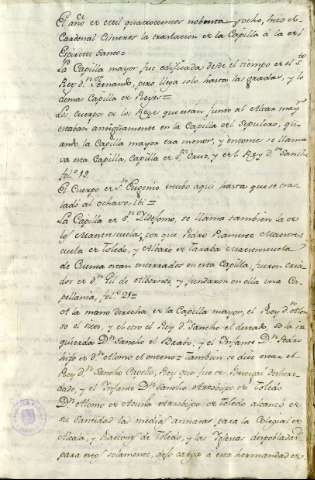 El año de mil quatrocientos nobenta y ocho, hizo el
Cardenal Cisneros la traslacion de la Capilla à la del
Espiritu Santo=
La Capilla mayor fue edificada desde el tiempo de el S.to
Rey Dn. Fernando, pero llega solo hasta las gradas, y lo
demas Capilla de Reyes=
Los cuerpos de los Reyes que estan junto al Altar mayor
estaban antiguamente en la Capilla del Sepulcro, qu-
ando la Capilla mayor era menor, y entonces se llama
va esta Capilla, Capilla de Sta. Cruz, y de el Rey Dn. Sancho
fol.o 19
El Cuerpo de Sn. Eugenio estubo aqui hasta que se tras
ladó al ochavo. ibi=
La Capilla de Sn. Ildefonso, se llama tambien la de
los
cuela de Toledo, y Alvaro de
de Osma estan enterrados en esta Capilla, fueron cria
dos de Dn. Gil de Albornoz, y fundaron en ella una Ca
pellania, fol.o 21=
A la mano derecha de la Capilla mayor, el Rey Dn. Alon
so el
quierda Dn. Sancho el Brabo, y el Infante Dn. Pedro
hijo de Dn. Alonso el onceno= Tambien se dice estar el
Rey Dn. Sancho Capelo, Rey que fue de Portugal
dado, y el Infante Dn. Sancho Arzobispo de Toledo
Dn. Alonso de Acuña Arzobispo de Toledo alcanzó de
su Santidad la media annata para la Colegial de
Alcala, y de Toledo, y las Iglesias despobladas
para esto solamente, dejo cargo à esta hermandad de